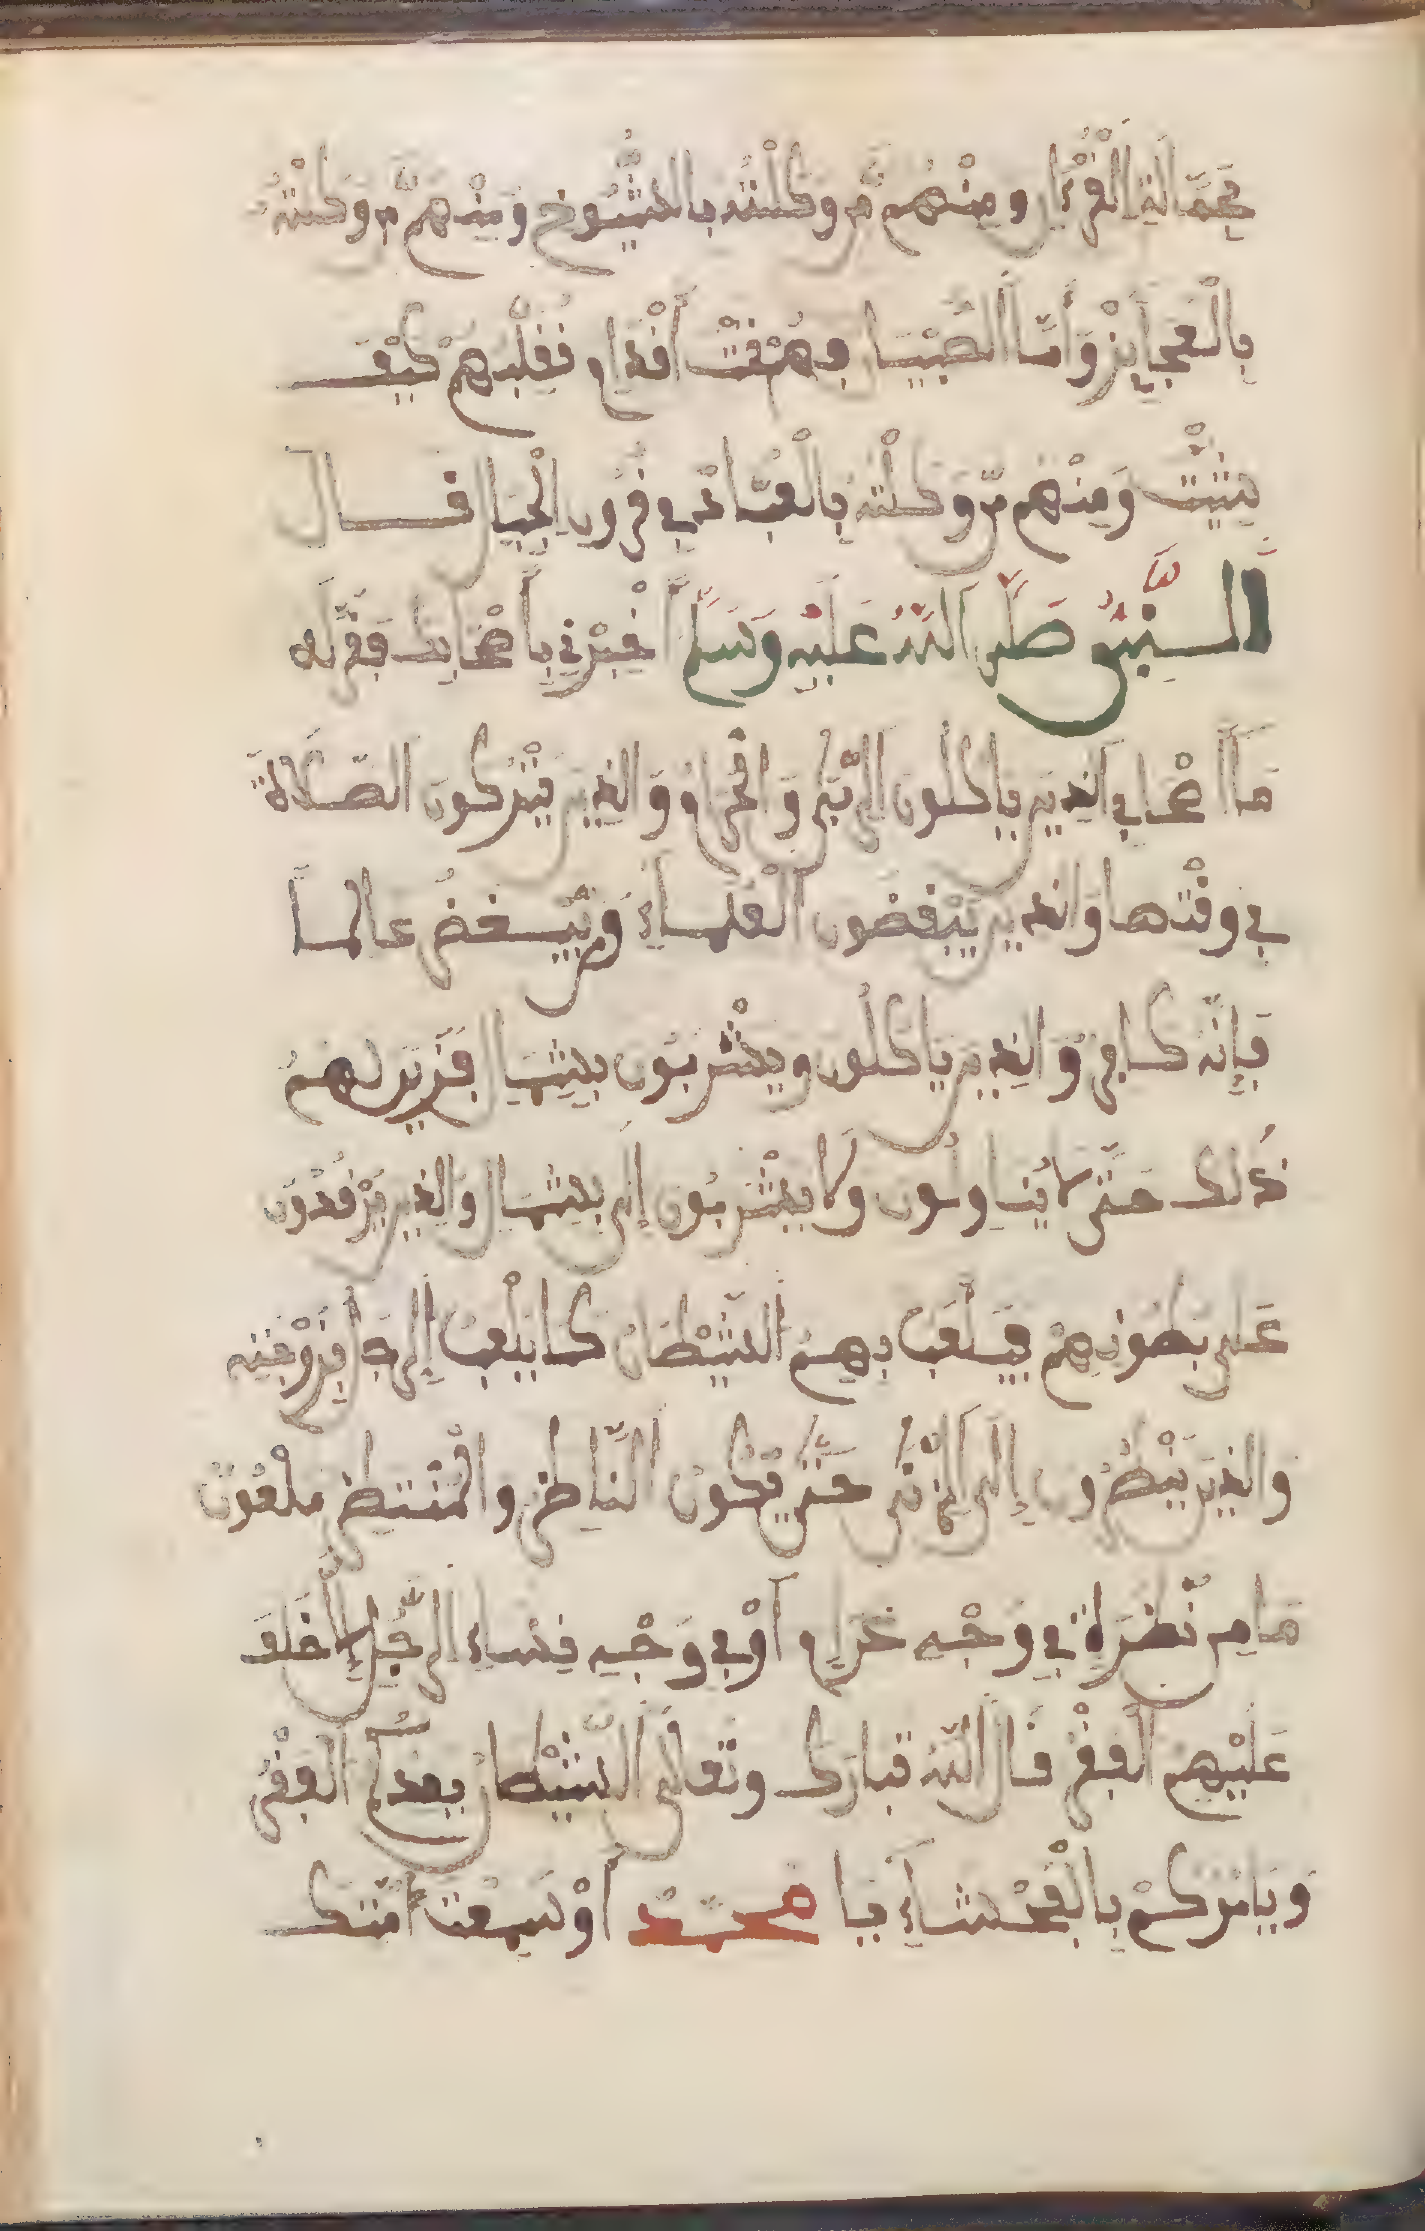 بحمالة القرءان ومنهم من وكلته بالشيوخ ومنهم من وكلته
بالعجايز وأما الصبيان فهم تحت أقدام نقلبهم كيف
شئت ومنهم من وكلته بالعباد في قرون الجبال قال
النبيء صلى الله عليه وسلم أخبرني بأصحابك فقال له
ما أصحابي الذين ياكلون الربى والحرام والذين يتركون الصلاة
في وقتها والذين يبغضون العلماء ومن يبغض عالما
فإنه كافر والذين ياكلون ويشربون بشمال فزين لهم
ذلك حتى لا يناولون ولا يشربون إلى بشمال والذين يرقدون
على بطونهم فيلعب بهم الشيطان كما يلعب الرجل بزوجته
والذين ينظرون إلى الزنى حتى تكون الناظر والمنتظر ملعون
ما من نظرة في وجه غلام أو في وجه نساء الرجل إلا خلف
عليهم الفقر قال الله تبارك وتعلى الشيطان يعدكم الفقر
ويامركم بالفحشاء يا محمد أو سمعت امتك